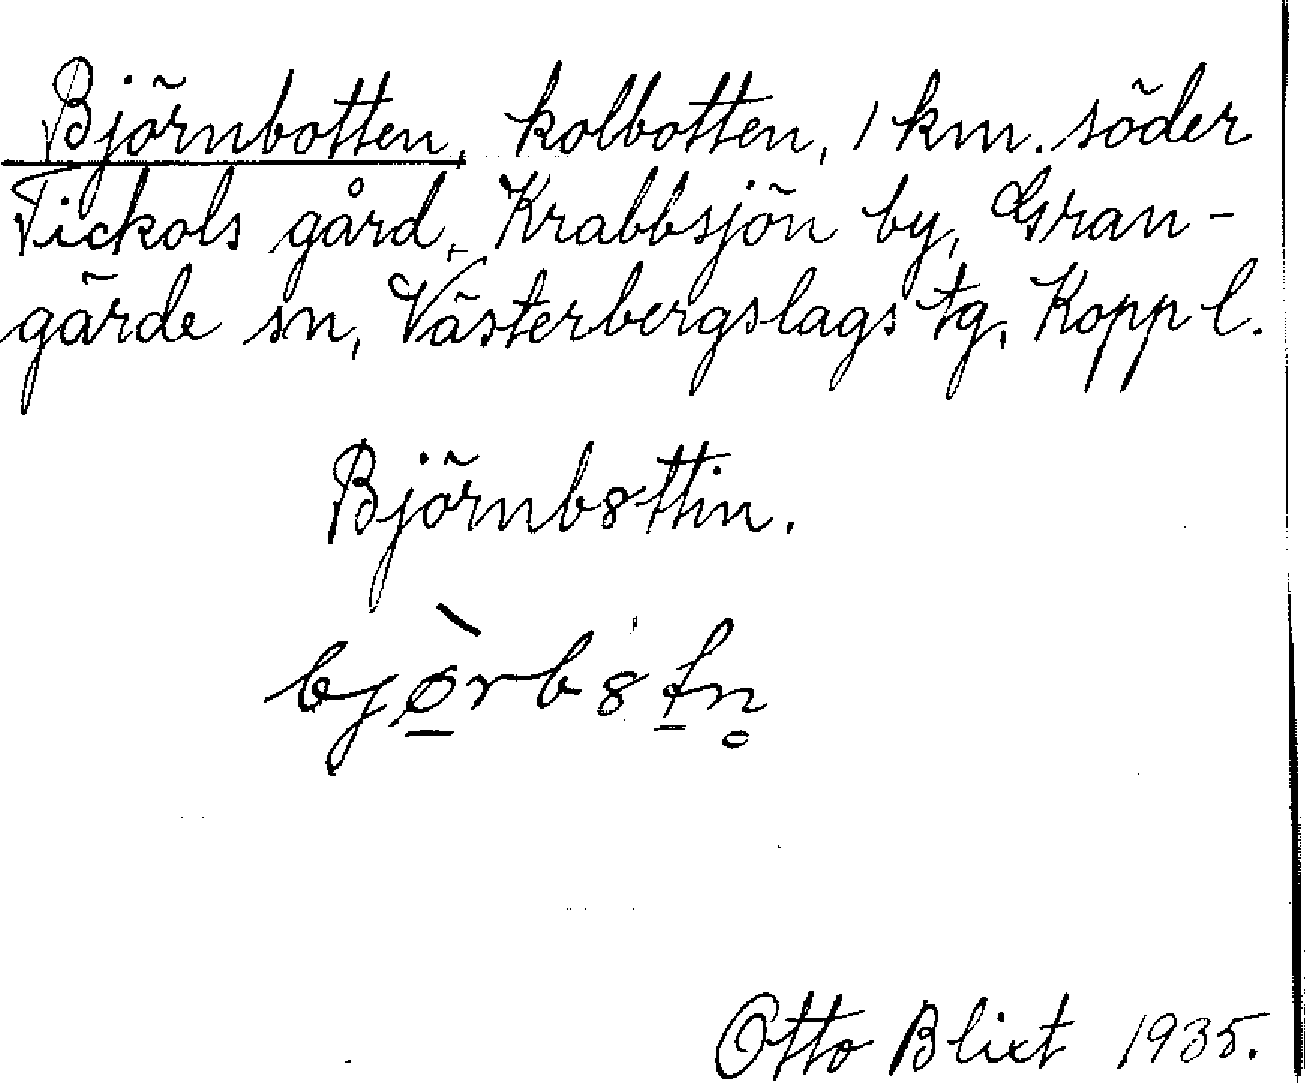 Björnbotten, kolbotten, 1 km. söder
Tickols gård, Krabbsjön by, Gran-
gärde sn, Västerbergslags tg, Kopp l.
Björnb8ttin.
bjø̱̀rb8ṯn̥
Otto Blixt 1935.